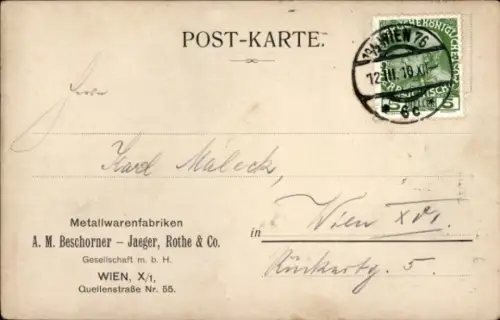 POST-KARTE.
WIEN 76
12.III.10.XII
6c
5 5
Herrn
Karl Maleck,
Metallwarenfabriken
A. M. Beschorner – Jaeger, Rothe & Co.
Gesellschaft m. b. H.
WIEN, X/1,
Quellenstraße Nr. 55.
in Wien XVI.
Rückertg. 5.